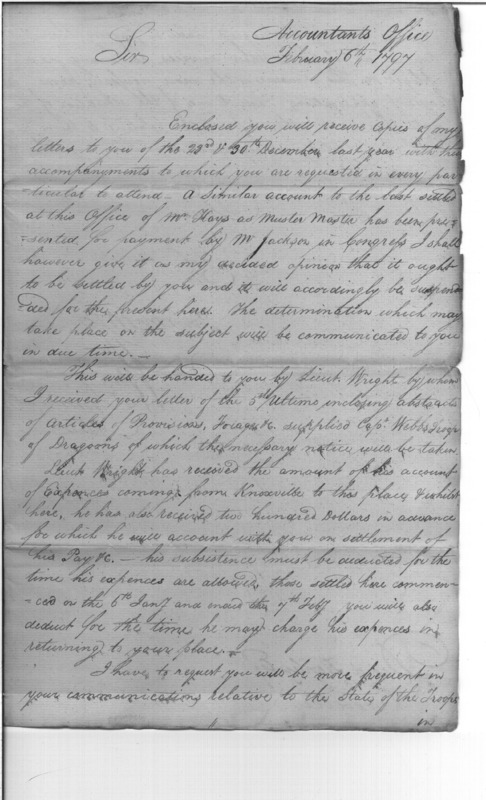 Accountants Office
Sir February 6th 1797
Enclosed you will receive Copies of my
letters to you of the 23rd & 30th December last year with the
accompanyments to which you are requested in every par-
-ticular to attend – A similar account to the last settled
at this Office of Mr Hays as Muster Master has been pre-
-sented for payment by Mr Jackson in Congress I shall
however give it as my decided opinion that it ought
to be settled by you and it will accordingly be suspen-
-ded for the present here. The determination which may
take place on the subject will be communicated to you
in due time. –
This will be handed to you by Lieut Wright by whom
I received your letter of the 5th Ultimo inclosing abstracts
of articles of Provisions, Forage &c. supplied Capt. Webbs Troop
of Dragoons of which the necessary notice will be taken
Lieut Wright has received the amount of his account
of Expences coming from Knoxville to this place & whilst
here, he has also received two hundred Dollars in advance
for which he will account with you in settlement of
his Pay &c. – his subsistence must be deducted for the
time his expences are allowed, those settled here commen-
-ced on the 6th Jany and ended the 7th Feby you will also
deduct for the time he may charge his expences in
returning to your place. –
I have to request you will be more frequent in
your communications relative to the State of the Troops
in